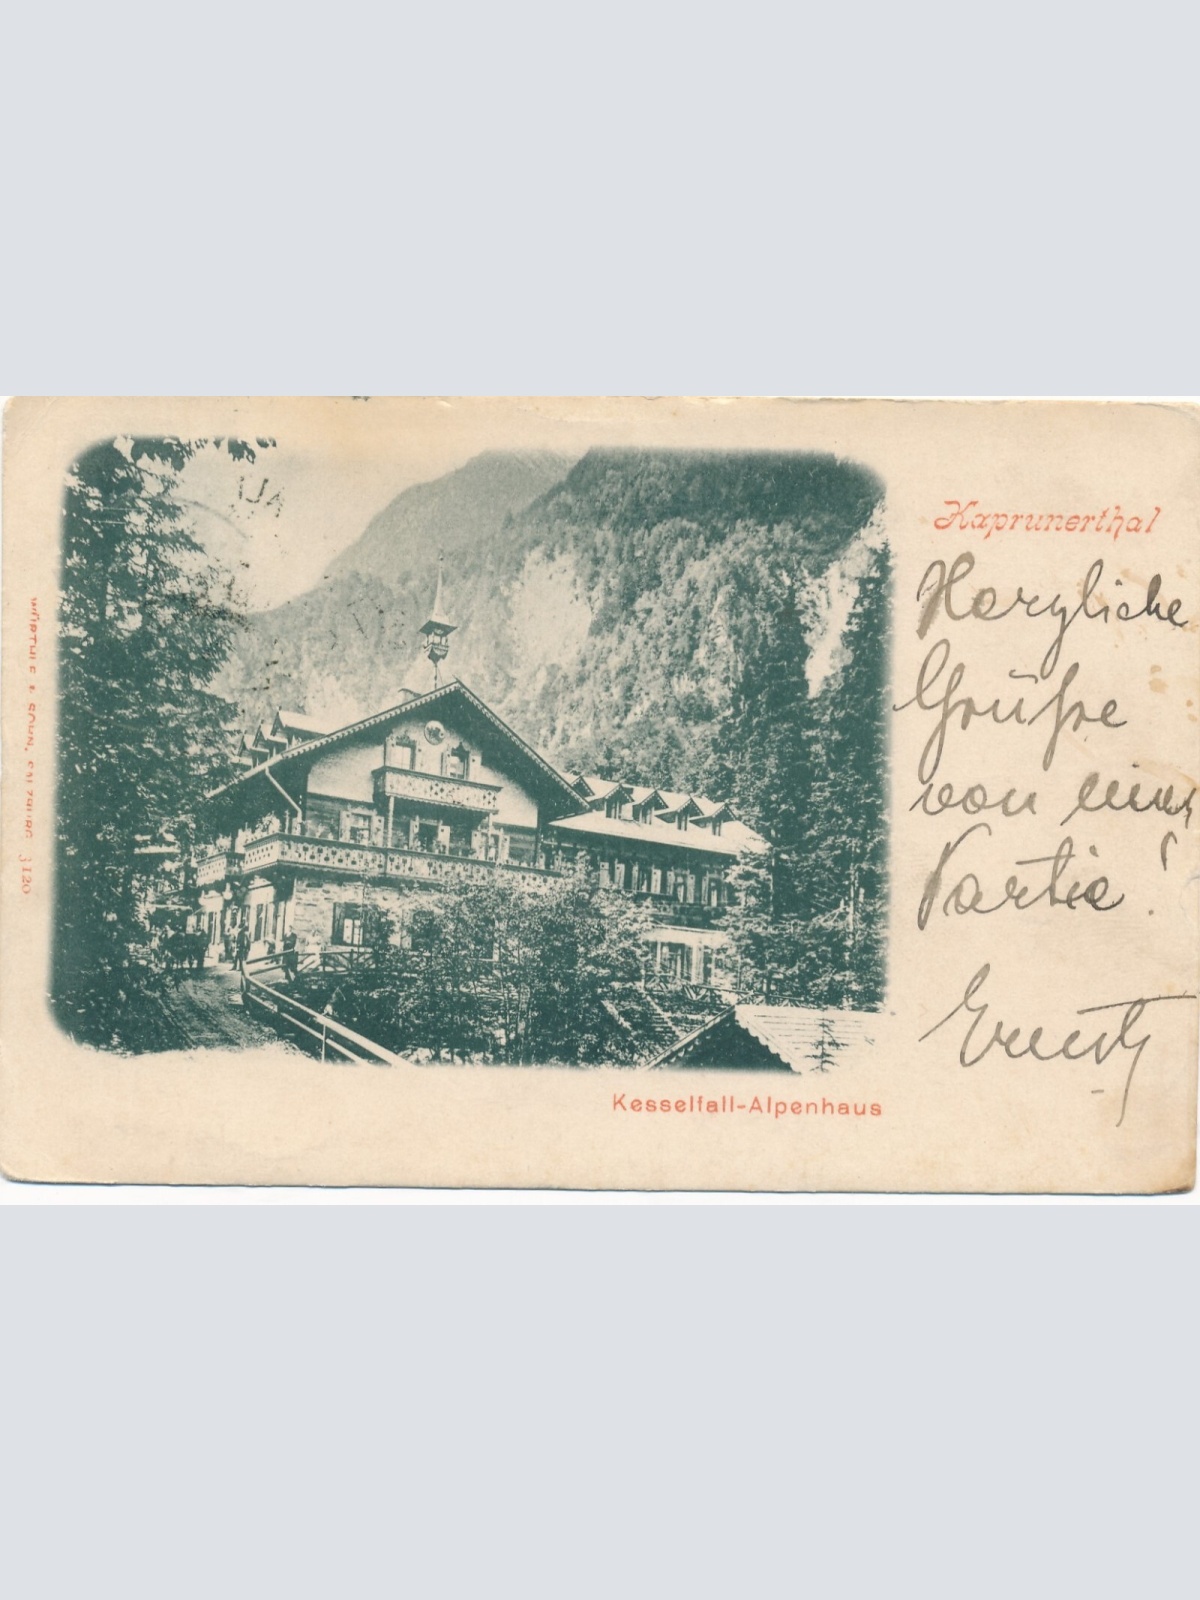 Kaprunerthal
Herzliche
Grüße
von einer
Partie!
Kesselfall-Alpenhaus
WÜRTHLE & SOHN, SALZBURG 3120